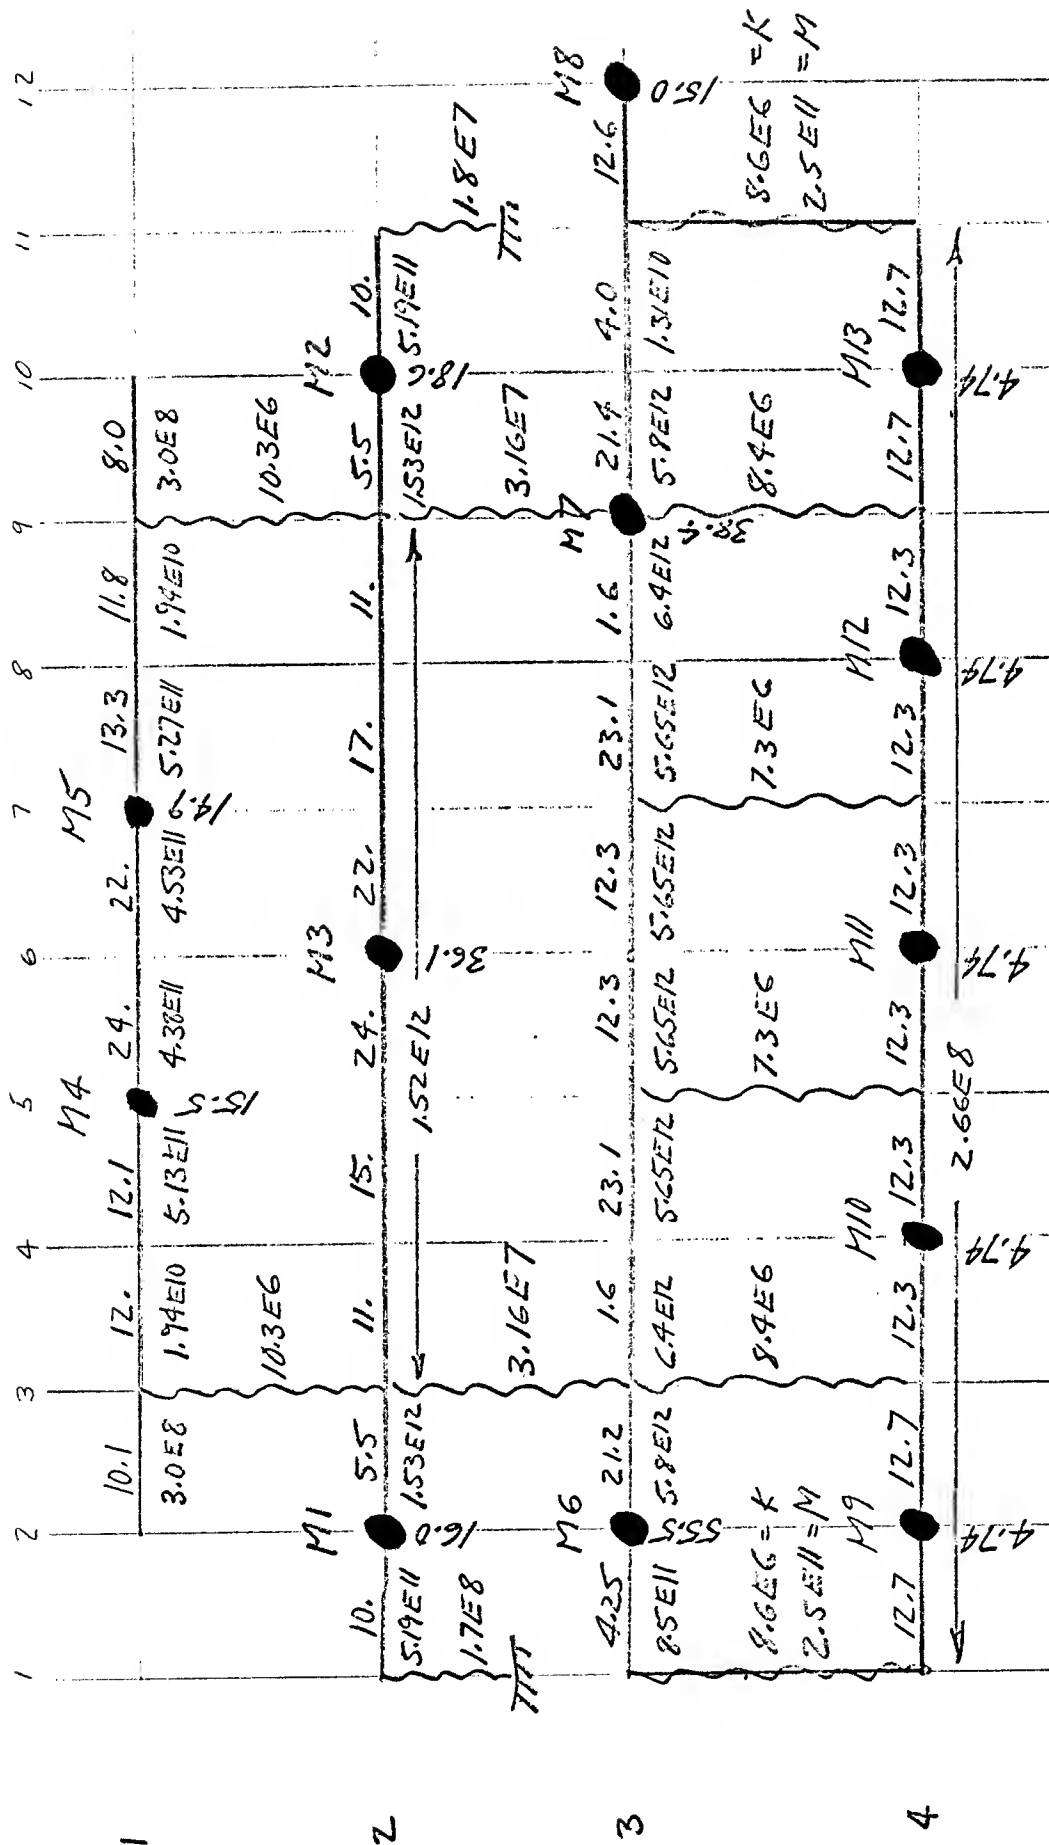 1 2 3 4 5 6 7 8 9 10 11 12
M4 M5
1 10.1 12. 12.1 24. 22. 13.3 11.8 8.0
3.0E8 1.94E10 5.13E11 4.38E11 4.53E11 5.27E11 1.94E10 3.0E8
15.5 14.9
10.3E6 10.3E6
M1 M3 M2
2 10. 5.5 11. 15. 24. 22. 17. 11. 5.5 10.
5.19E11 1.53E12 1.52E12 1.53E12 5.19E11
16.0 36.1 18.6
1.7E8 3.16E7 3.16E7 1.8E7
M6 M7 M8
3 4.25 21.2 1.6 23.1 12.3 12.3 23.1 1.6 21.4 4.0 12.6
8.5E11 5.8E12 6.4E12 5.65E12 5.65E12 5.65E12 5.65E12 6.4E12 5.8E12 1.31E10
55.5 38.4 15.0
8.6E6=K 8.4E6 7.3E6 7.3E6 8.4E6 8.6E6=K
2.5E11=M 2.5E11=M
M9 M10 M11 M12 M13
4 12.7 12.7 12.3 12.3 12.3 12.3 12.3 12.3 12.7 12.7
4.74 4.74 4.74 4.74 4.74
2.66E8